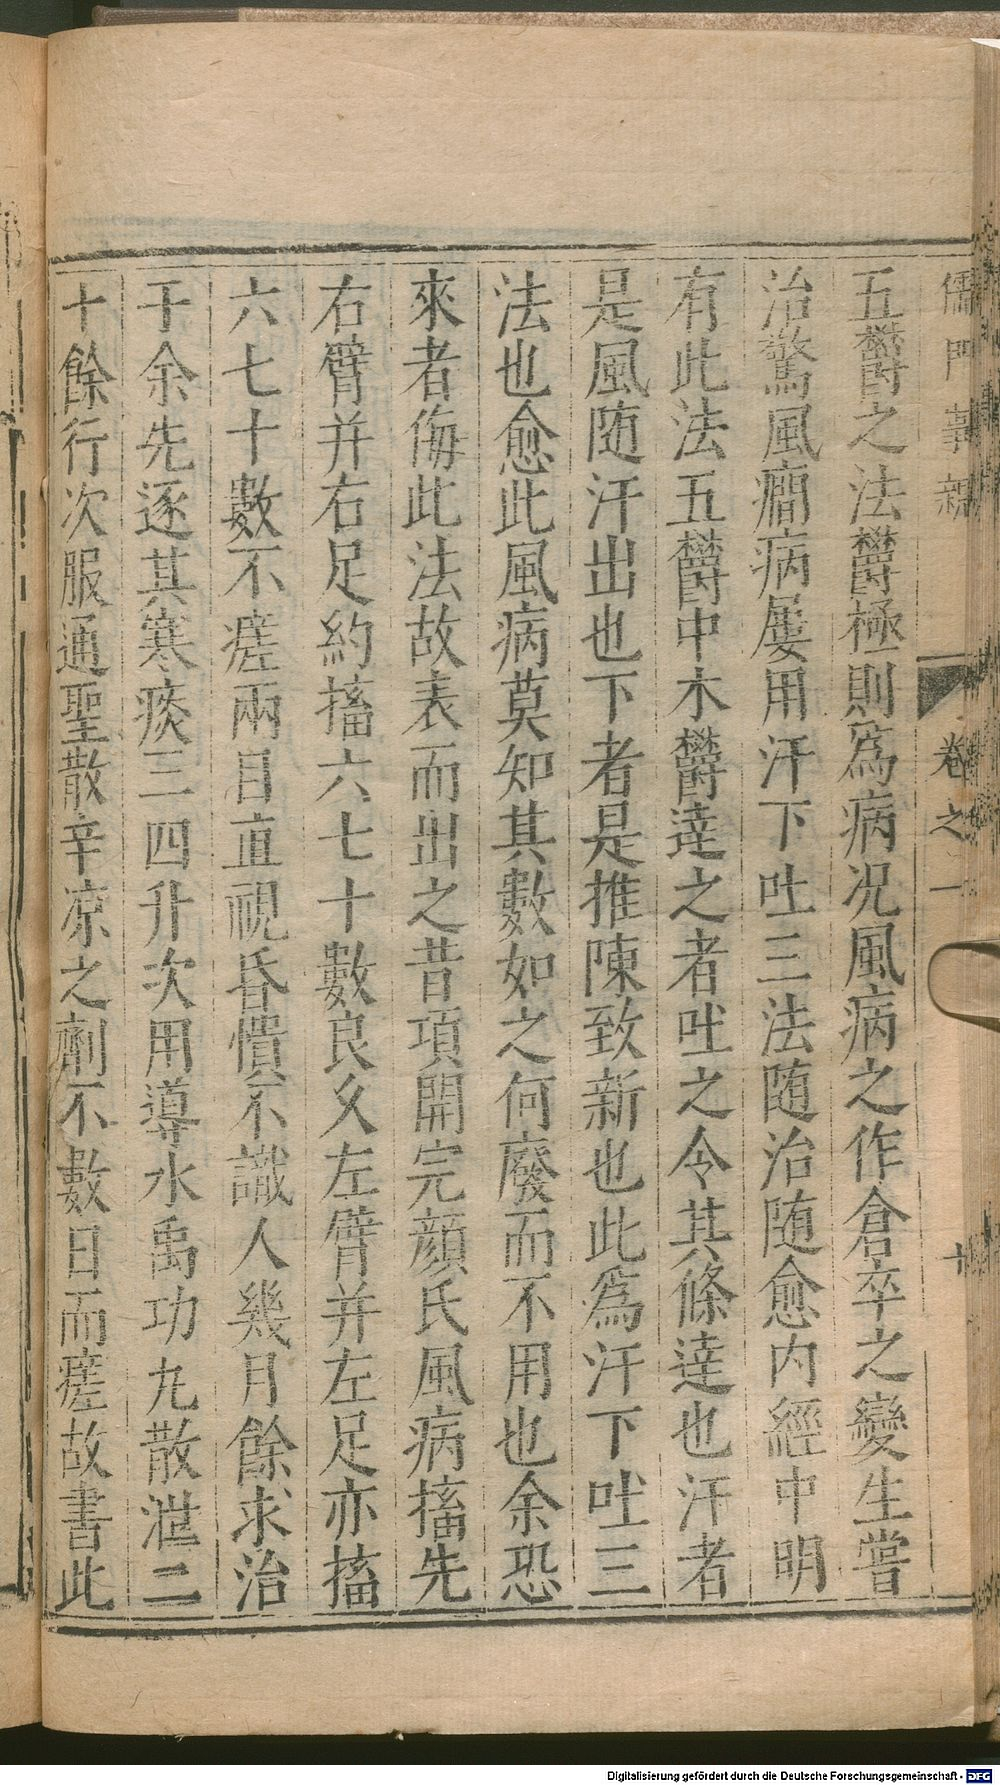 儒門事親 卷之一 十
五欝之法欝極則爲病况風病之作倉卒之變生嘗
治驚風癎病屢用汗下吐三法随治随愈内經中明
有此法五欝中木欝達之者吐之令其條達也汗者
是風随汗出也下者是推陳致新也此爲汗下吐三
法也愈此風病莫知其數如之何廢而不用也余恐
來者侮此法故表而出之昔項開完顔氏風病搐先
右臂并右足約搐六七十數良久左臂并左足亦搐
六七十數不瘥兩目直視昏憒不識人幾月餘求治
于余先逐其寒痰三四升次用導水禹功丸散泄二
十餘行次服通聖散辛凉之劑不數日而瘥故書此
Digitalisierung gefördert durch die Deutsche Forschungsgemeinschaft - DFG